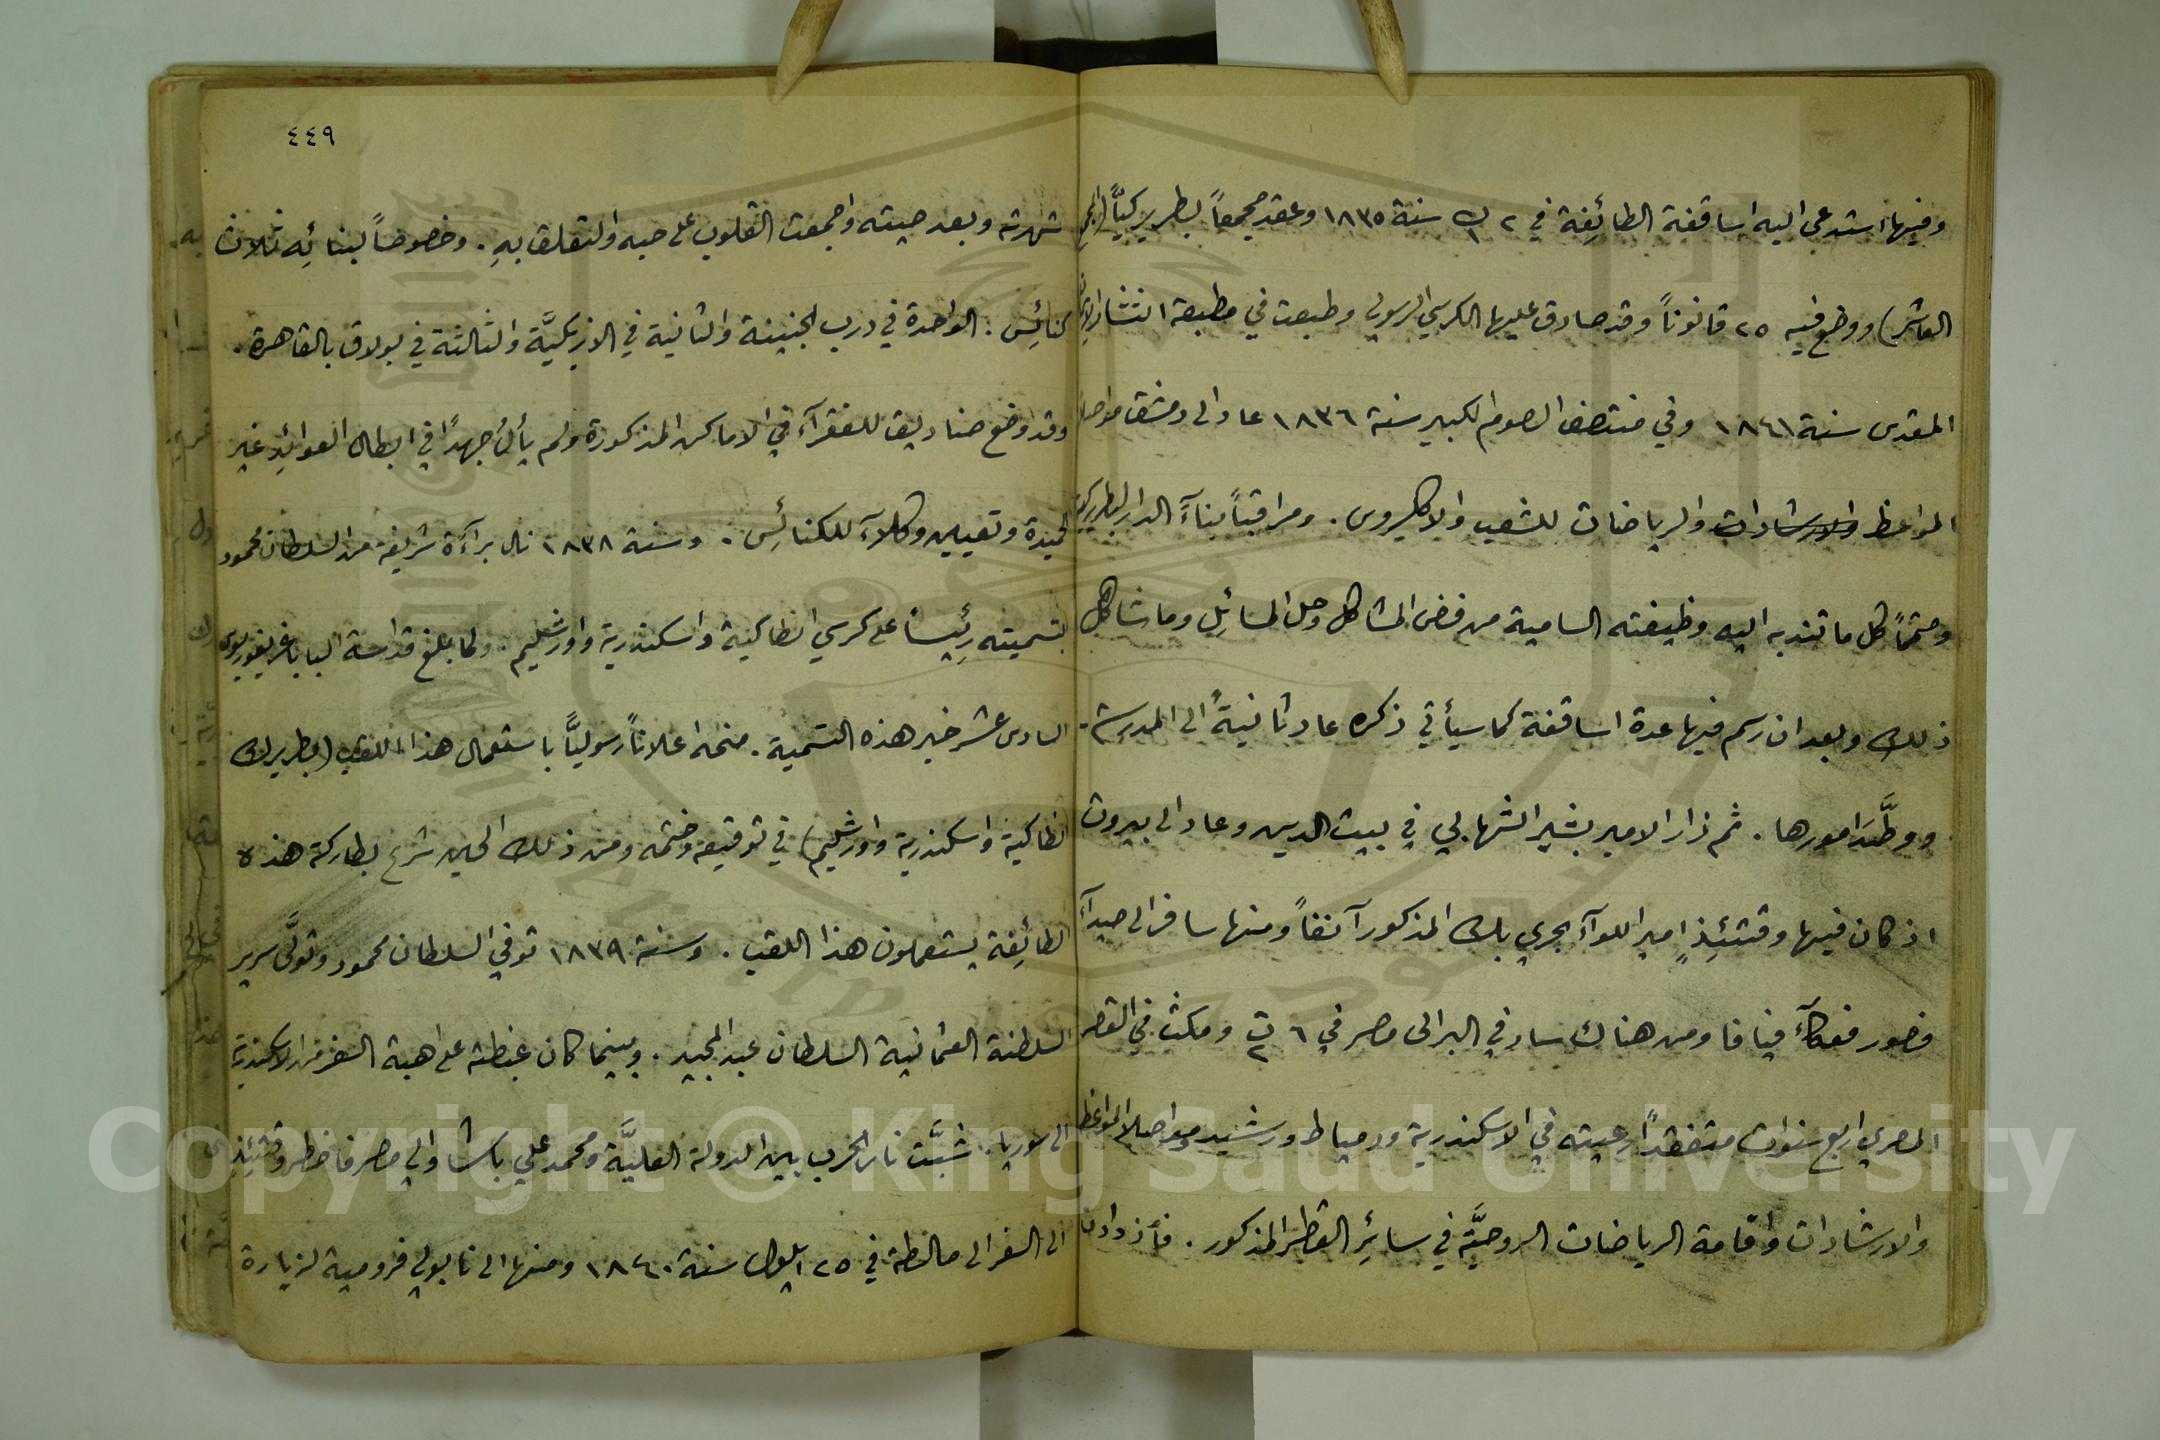 وفيها استدعى اليه اساقفة الطائفة في ٢ ك١ سنة ١٨٣٥ وعقد مجمعاً بطريركيّاً (المجمع
العاشر) ووضع فيه ٢٥ قانوناً وقد صادق عليها الكرسي الرسولي وطبعت في مطبعة انتشار الايمان
المقدس سنة ١٨٤١ وفي منتصف الصوم الكبير سنة ١٨٣٦ عاد الى دمشق مواصلا
المواعظ والارشادات والرياضات للشعب والاكليروس . ومراقباً بناءَ الدار البطريركية
ومتمماً كل ما تندبه اليه وظيفته السامية من فض المشاكل وحل المسائِل وما شاكل
ذلك وبعد ان رسم فيها عدة اساقفة كما سيأتي ذكره عاد ثانيةً الى المدرسة
ووطَّدَ امورها . ثم زار الامير بشير الشهابي في بيت الدين وعاد الى بيروت
اذ كان فيها وقتئِذٍ امير اللوآء بحري بك المذكور آنفاً ومنها سافر الى صيدآء
فصور فعكآء فيافا ومن هناك سار في البر الى مصر في ٦ ت٢ ومكث في القطر
المصري اربع سنوات متفقداً رعيته في الاسكندرية ودمياط ورشيد مواصلا المواعظ
والارشادات واقامة الرياضات الروحيَّة في سائِر القطر المذكور . فأذ دادت
٤٤٩
شهرته وبعد صيته واجمعت القلوب على حبه والتعلق بهِ . وخصوصاً لبنائِه ثلاث
كنائِس : الواحدة في درب الجنينة والثانية في الازبكيَّة والثالثة في بولاق بالقاهرة .
وقد وضع صناديق للفقرآء في الاماكن المذكورة ولم يألُ جهدًا في ابطال العوائِد غير
الحميدة وتعيين وكلآء للكنائِس . وسنة ١٨٣٨ نال برآءَة شريفة من السلطان محمود
بتسميته رئِيساً على كرسي انطاكية واسكندرية واورشليم . ولما بلغ قداسة البابا غريغوريوس
السادس عشر خبر هذه التسمية . منحه اعلاناً رسوليًّا باستعمال هذا اللقب (بطريرك
انطاكية واسكندرية واورشليم) في توقيعه وختمه ومن ذلك الحين شرع بطاركة هذه
الطائِفة يستعملون هذا اللقب . وسنة ١٨٣٩ توفي السلطان محمود وتولَّى سرير
السلطنة العثمانية السلطان عبد المجيد . وبينما كان غبطته على اهبة السفر من الاسكندرية
الى سوريا . شبَّت نار الحرب بين الدولة العليَّة ومحمد علي باشا والي مصر فاضطر وقتئِذٍ
الى السفر الى مالطة في ٢٥ ايلول سنة ١٨٤٠ ومنها الى نابولي فرومية لزيارة
Copyright © King Saud University